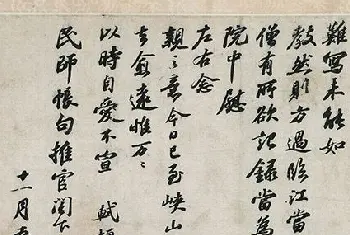 難寫未能如
教然則方過臨江當
僧有所欲記錄當為
院中慰
左右念
親之意今日已至峽山
去愈遠惟万〻
以時自愛不宣 軾頓
民師帳句推官閣下
十一月五